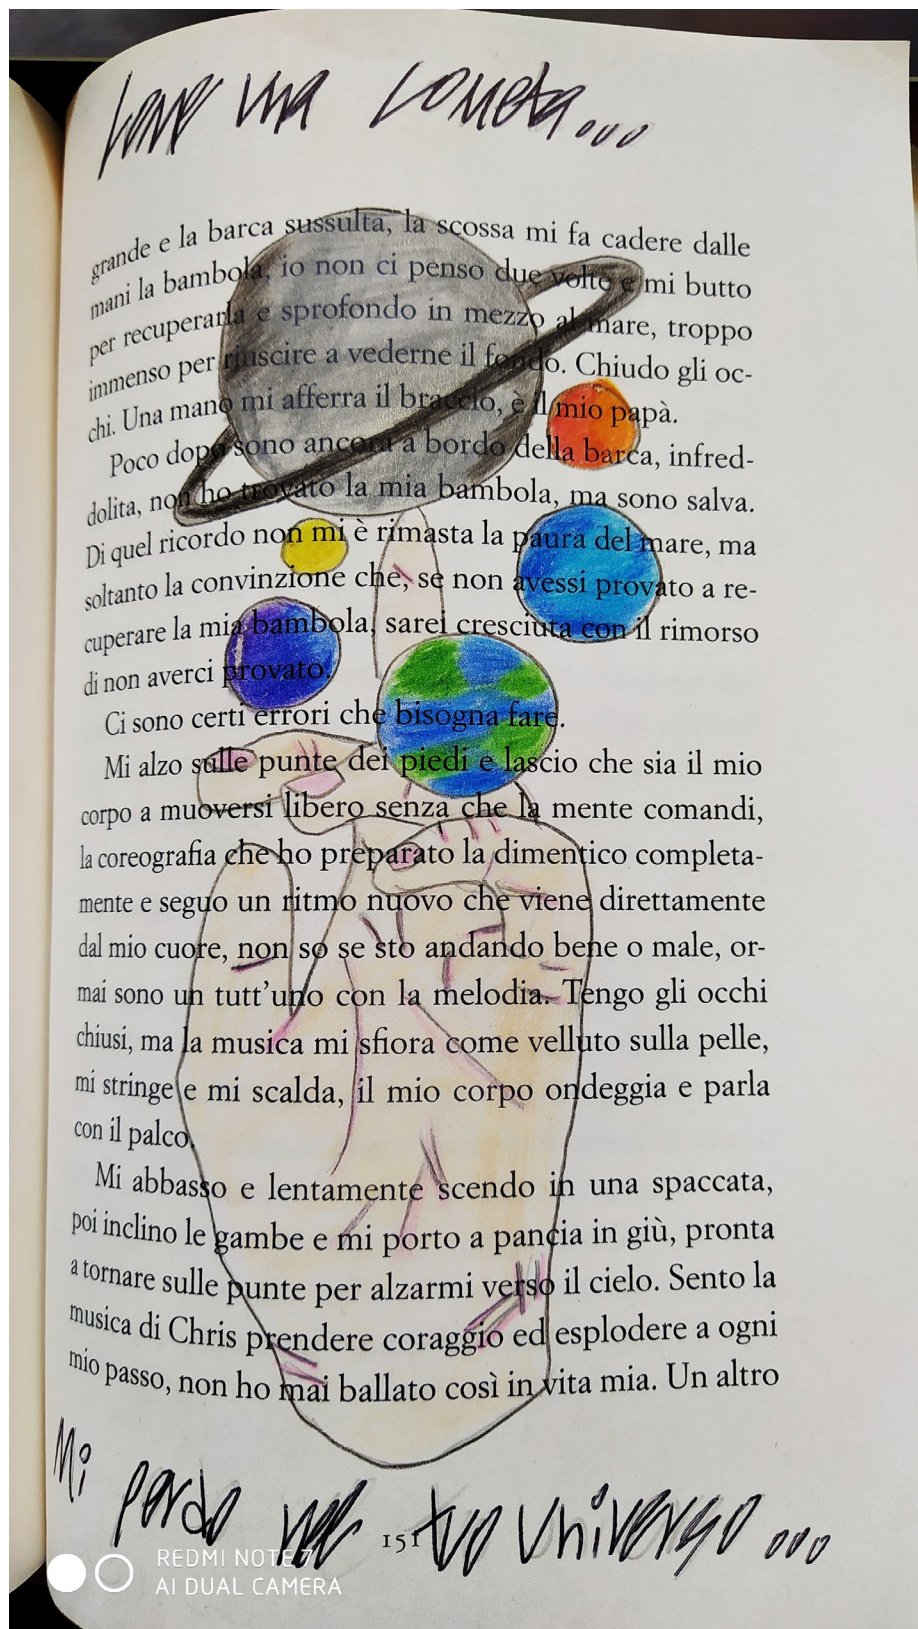 come una cometa...
grande e la barca sussulta, la scossa mi fa cadere dalle
mani la bambola, io non ci penso due volte e mi butto
per recuperarla e sprofondo in mezzo al mare, troppo
immenso per riuscire a vederne il fondo. Chiudo gli oc-
chi. Una mano mi afferra il braccio, è il mio papà.
Poco dopo sono ancora a bordo della barca, infred-
dolita, non ho trovato la mia bambola, ma sono salva.
Di quel ricordo non mi è rimasta la paura del mare, ma
soltanto la convinzione che, se non avessi provato a re-
cuperare la mia bambola, sarei cresciuta con il rimorso
di non averci provato.
Ci sono certi errori che bisogna fare.
Mi alzo sulle punte dei piedi e lascio che sia il mio
corpo a muoversi libero senza che la mente comandi,
la coreografia che ho preparato la dimentico completa-
mente e seguo un ritmo nuovo che viene direttamente
dal mio cuore, non so se sto andando bene o male, or-
mai sono un tutt'uno con la melodia. Tengo gli occhi
chiusi, ma la musica mi sfiora come velluto sulla pelle,
mi stringe e mi scalda, il mio corpo ondeggia e parla
con il palco.
Mi abbasso e lentamente scendo in una spaccata,
poi inclino le gambe e mi porto a pancia in giù, pronta
a tornare sulle punte per alzarmi verso il cielo. Sento la
musica di Chris prendere coraggio ed esplodere a ogni
mio passo, non ho mai ballato così in vita mia. Un altro
Mi perdo nel tuo universo...
151
REDMI NOTE 7
AI DUAL CAMERA